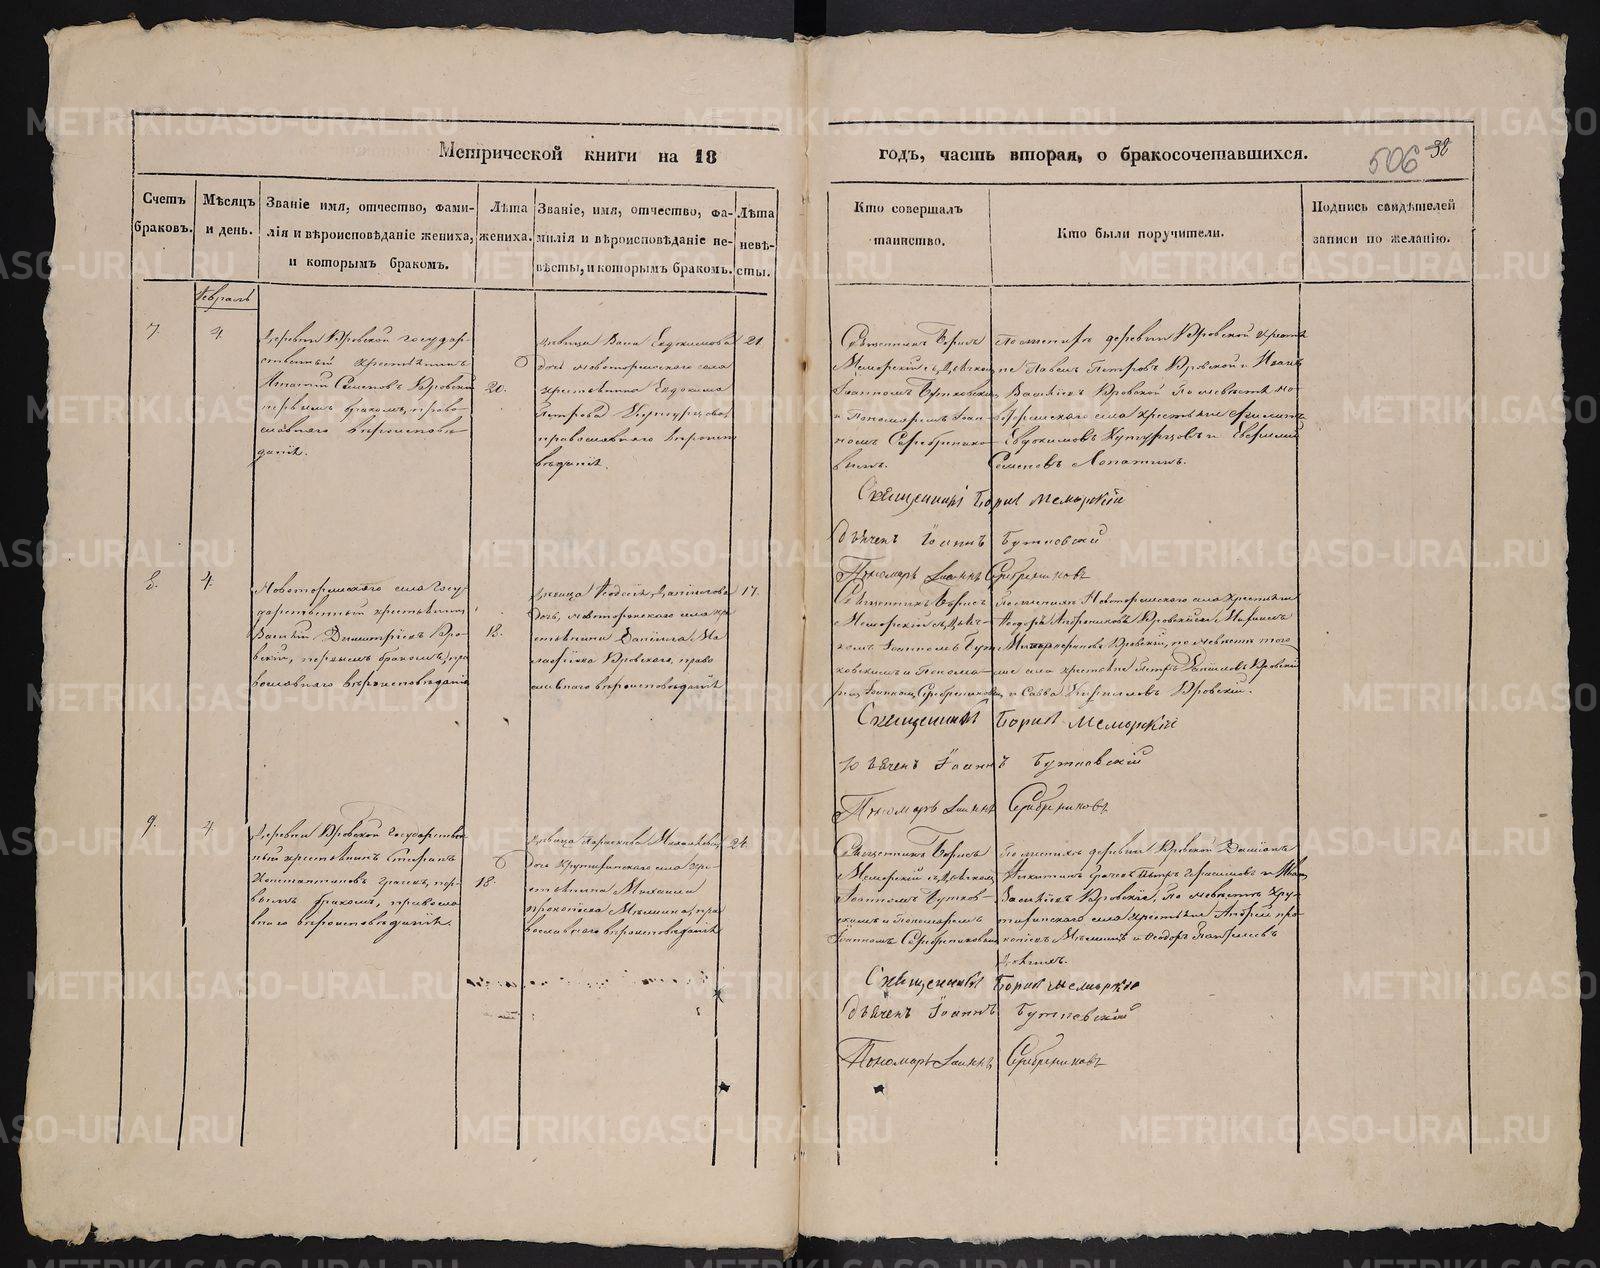 Метрической книги на 18
годъ, часть вторая, о бракосочетавшихся.
506
Счетъ браковъ.
Мѣсяцъ и день.
Званіе имя, отчество, фами-
лія и вѣроисповѣданіе жениха,
и которымъ бракомъ.
Лѣта
жениха.
Званіе, имя, отчество, фа-
милія и вѣроисповѣданіе не-
вѣсты, и которымъ бракомъ.
Лѣта
невѣ-
сты.
Кто совершалъ
таинство.
Кто были поручители.
Подпись свидѣтелей
записи по желанію.
Февраль
7.
4.
Деревни Юровской государ-
ственный крестьянинъ
Семеновъ Юровский
первымъ бракомъ, право-
славнаго вѣроиспове
данія.
20.
Девица
дочь Новоторжскаго села
крестьянина Евдокима
Петрова
православнаго вѣроиспо
вѣданія.
21
Священникъ Борисъ
Меморский съ Дьячкомъ
Іоанномъ Бутковским
и Пономаремъ Іоан-
номъ Серебрянико-
вымъ.
По женихѣ деревни Юровской крестья
не Павелъ Петровъ Юровской и Иванъ
Васильевъ Юровской По невѣстѣ Но-
воторжскаго села крестьяне
Евдокимовъ и Евгений
Семеновъ Лопатинъ.
Священникъ Борис Меморский
Дьячекъ Іоаннъ Бутковский
Пономарь Іоаннъ Серебрениковъ
8.
4.
Новоторжскаго села Госу-
дарственный крестьянинъ
Василий Димитриевъ Юро-
вский, первымъ бракомъ, пра
вославнаго вѣроисповѣданія
18.
Девица Феодосия Данилова
дочь, Новоторжскаго села кр
естьянина Данилы
Юровскаго, право
славнаго вѣроисповѣданія
17.
Священникъ Борисъ
Меморский съ Дьяч-
комъ Іоанномъ Бут
ковскимъ и Понома-
ремъ Іоанномъ Серебрениковым
По женихѣ Новоторжскаго села крестьяне
Феодоръ Андрониковъ Юровский и
Юровский, по невѣстѣ того
же села крестьяне Петръ Даниловъ Юровский
и Савва Кириловъ Юровский.
Священникъ Борис Меморский
Дьячекъ Іоаннъ Бутковский
Пономарь Іоаннъ Серебрениковъ
9.
4.
Деревни Юровской Государствен
ный крестьянинъ Стефанъ
Константиновъ Грачевъ, пер-
вымъ бракомъ, правосла
внаго вѣроисповѣданія.
18.
Девица Параскева Михайлова,
дочь Крутихинскаго села кре-
стьянина Михаила
Прокопьева пра
вославнаго вѣроисповѣданія
24.
Священникъ Борисъ
Меморский съ Дьячком
Іоанномъ Бутков-
скимъ и Пономаремъ
Іоанномъ Серебрениковым
По женихѣ деревни Юровской
Никитинъ Грачевъ Петръ Герасимовъ и Иван
Васильевъ Юровские, По невѣстѣ Кру-
тихинскаго села крестьяне Андрей Про-
копьевъ и Феодоръ
Священникъ Борис Меморский
Дьячекъ Іоаннъ Бутковский
Пономарь Іоаннъ Серебрениковъ
METRIKI.GASO-URAL.RU